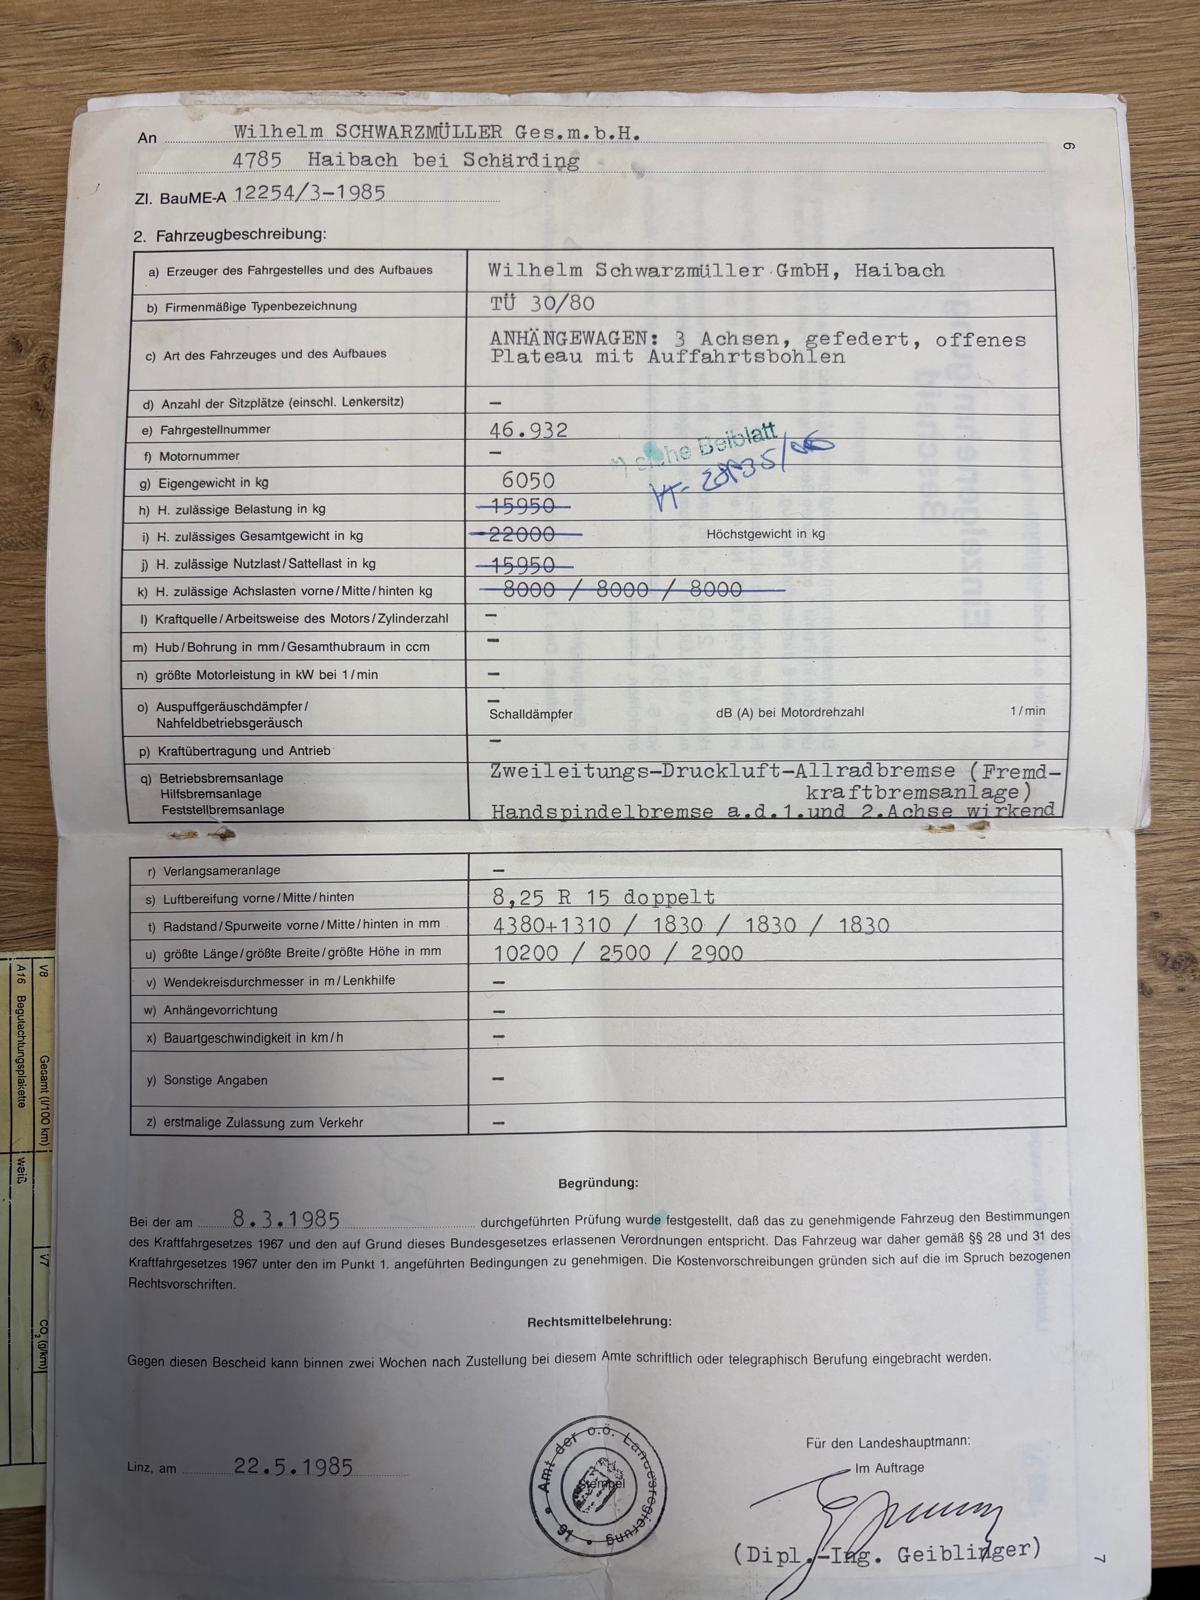 6
An Wilhelm SCHWARZMÜLLER Ges.m.b.H.
4785 Haibach bei Schärding
Zl. BauME-A 12254/3-1985
2. Fahrzeugbeschreibung:
a) Erzeuger des Fahrgestelles und des Aufbaues Wilhelm Schwarzmüller GmbH, Haibach
b) Firmenmäßige Typenbezeichnung TÜ 30/80
c) Art des Fahrzeuges und des Aufbaues ANHÄNGEWAGEN: 3 Achsen, gefedert, offenes
Plateau mit Auffahrtsbohlen
d) Anzahl der Sitzplätze (einschl. Lenkersitz) –
e) Fahrgestellnummer 46.932
siehe Beiblatt
f) Motornummer –
g) Eigengewicht in kg 6050
h) H. zulässige Belastung in kg 15950
i) H. zulässiges Gesamtgewicht in kg 22000 Höchstgewicht in kg
j) H. zulässige Nutzlast/Sattellast in kg 15950
k) H. zulässige Achslasten vorne/Mitte/hinten kg 8000 / 8000 / 8000
l) Kraftquelle/Arbeitsweise des Motors/Zylinderzahl –
m) Hub/Bohrung in mm/Gesamthubraum in ccm –
n) größte Motorleistung in kW bei 1/min –
o) Auspuffgeräuschdämpfer/ –
Nahfeldbetriebsgeräusch Schalldämpfer dB (A) bei Motordrehzahl 1/min
p) Kraftübertragung und Antrieb –
q) Betriebsbremsanlage Zweileitungs-Druckluft-Allradbremse (Fremd-
Hilfsbremsanlage kraftbremsanlage)
Feststellbremsanlage Handspindelbremse a.d.1.und 2.Achse wirkend
r) Verlangsameranlage –
s) Luftbereifung vorne/Mitte/hinten 8,25 R 15 doppelt
t) Radstand/Spurweite vorne/Mitte/hinten in mm 4380+1310 / 1830 / 1830 / 1830
u) größte Länge/größte Breite/größte Höhe in mm 10200 / 2500 / 2900
v) Wendekreisdurchmesser in m/Lenkhilfe –
w) Anhängevorrichtung –
x) Bauartgeschwindigkeit in km/h –
y) Sonstige Angaben –
z) erstmalige Zulassung zum Verkehr –
Begründung:
Bei der am 8.3.1985 durchgeführten Prüfung wurde festgestellt, daß das zu genehmigende Fahrzeug den Bestimmungen
des Kraftfahrgesetzes 1967 und den auf Grund dieses Bundesgesetzes erlassenen Verordnungen entspricht. Das Fahrzeug war daher gemäß §§ 28 und 31 des
Kraftfahrgesetzes 1967 unter den im Punkt 1. angeführten Bedingungen zu genehmigen. Die Kostenvorschreibungen gründen sich auf die im Spruch bezogenen
Rechtsvorschriften.
Rechtsmittelbelehrung:
Gegen diesen Bescheid kann binnen zwei Wochen nach Zustellung bei diesem Amte schriftlich oder telegraphisch Berufung eingebracht werden.
Linz, am 22.5.1985
Amt der o.ö. Landesregierung
16
Stempel
Für den Landeshauptmann:
Im Auftrage
(Dipl.-Ing. Geiblinger)
7
V8 Gesamt (l/100 km) V7 CO2 (g/km)
A16 Begutachtungsplakette weiß